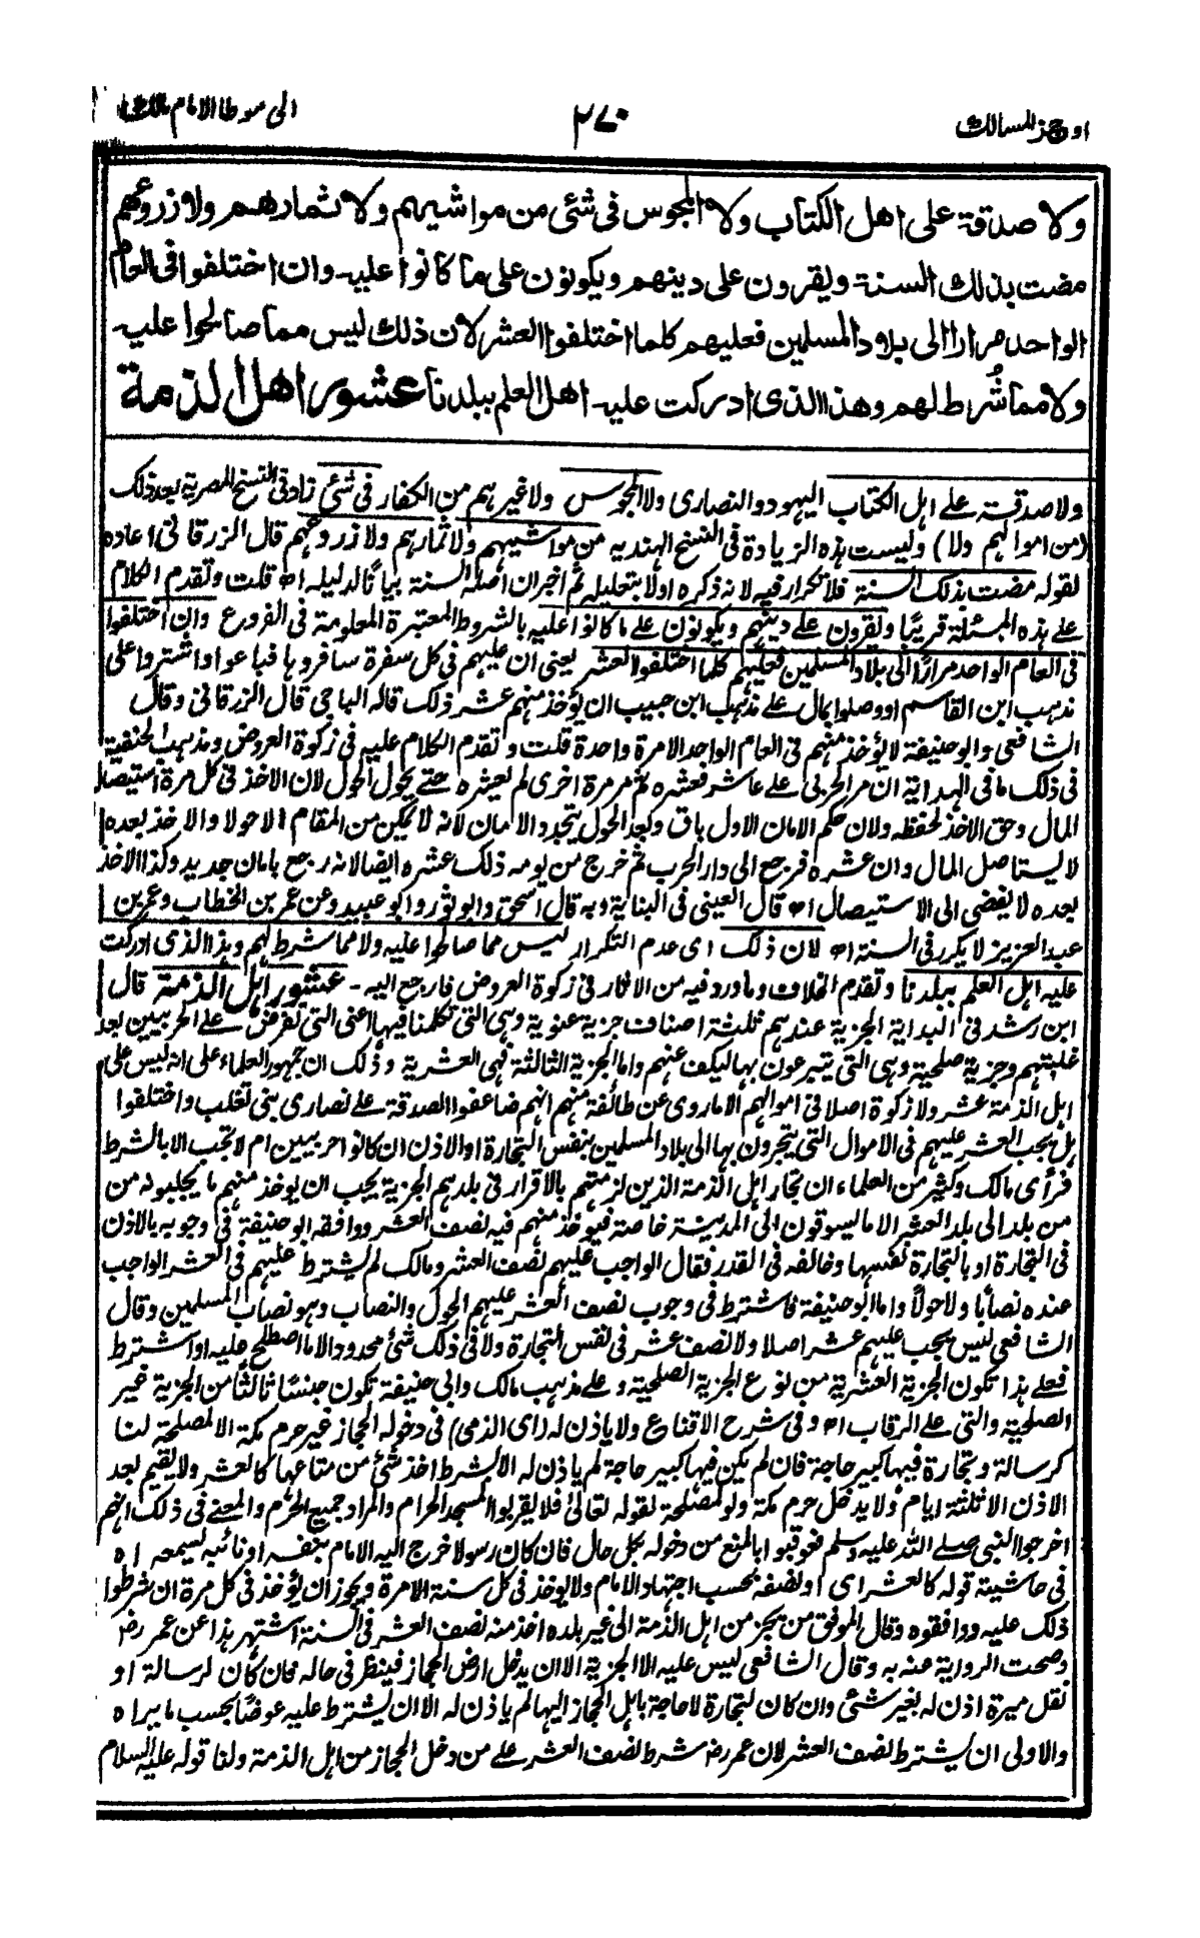 اوجز المسالك
٢٧٠
الى موطا الامام مالك
ولا صدقة على اهل الكتاب ولا المجوس فى شئ من مواشيهم ولا ثمارهم ولا زروعهم
مضت بذلك السنة ويقرون على دينهم ويكونون على ما كانوا عليه وان اختلفوا فى العام
الواحد مرارا الى بلاد المسلمين فعليهم كلما اختلفوا العشر لان ذلك ليس مما صالحوا عليه
ولا مما شُرط لهم وهذا الذى ادركت عليه اهل العلم ببلدنا عشور اهل الذمة
ولا صدقة على اهل الكتاب اليهود والنصارى ولا المجوس ولا غيرهم من الكفار فى شئ زاد فى النسخ المصرية بعد ذلك
(من اموالهم ولا) وليست هذه الزيادة فى النسخ الهندية من مواشيهم ولا ثمارهم ولا زروعهم قال الزرقانى اعاده
لقوله مضت بذلك السنة فلا تكرار فيه لانه ذكره اولا بتعليله ثم اخبر ان اصله السنة بيانا لدليله اه قلت وتقدم الكلام
على هذه المسئلة قريبًا ويقرون على دينهم ويكونون على ما كانوا عليه بالشروط المعتبرة المعلومة فى الفروع وان اختلفوا
فى العام الواحد مرارًا الى بلاد المسلمين فعليهم كلما اختلفوا العشر يعنى ان عليهم فى كل سفرة سافروها فباعوا او اشتروا على
مذهب ابن القاسم او وصلوا بمال على مذهب ابن حبيب ان يؤخذ منهم عشر ذلك قاله الباجى قال الزرقانى وقال
الشافعى وابو حنيفة لا يؤخذ منهم فى العام الواحد الا مرة واحدة قلت وتقدم الكلام عليه فى زكوة العروض ومذهب الحنفية
فى ذلك ما فى الهداية ان مر الحربى على عاشر فعشره ثم مر مرة اخرى لم يعشره حتى يحول الحول لان الاخذ فى كل مرة استيصال
المال وحق الاخذ لحفظه ولان حكم الامان الاول باق وبعد الحول يتجدد الامان لانه لا يمكن من المقام الا حولا والاخذ بعده
لا يستاصل المال وان عشره فرجع الى دار الحرب ثم خرج من يومه ذلك عشره ايضا لانه رجع بامان جديد وكذا الاخذ
بعده لا يفضى الى الاستيصال اه قال العينى فى البناية وبه قال اسحق وابو ثور وابو عبيد وعن عمر بن الخطاب وعمر بن
عبد العزيز لا يكرر فى السنة اه لان ذلك اى عدم التكرار ليس مما صالحوا عليه ولا مما شرط لهم وهذا الذى ادركت
عليه اهل العلم ببلدنا وتقدم الخلاف وما ورد فيه من الاثار فى زكوة العروض فارجع اليه - عشور اهل الذمة قال
ابن رشد فى البداية الجزية عندهم ثلثة اصناف جزية عنوية وهى التى تكلمنا فيها اعنى التى تفرض على الحربيين بعد
غلبتهم وجزية صلحية وهى التى يتبرعون بها ليكف عنهم واما الجزية الثالثة فهى العشرية وذلك ان جمهور العلماء على انه ليس على
اهل الذمة عشر ولا زكوة اصلا فى اموالهم الا ماروى عن طائفة منهم انهم ضاعفوا الصدقة على نصارى بنى تغلب واختلفوا
هل يجب العشر عليهم فى الاموال التى يتجرون بها الى بلاد المسلمين بنفس التجارة او الاذن ان كانوا حربيين ام لا تجب الا بالشرط
فرأى مالك وكثير من العلماء ان تجار اهل الذمة الذين لزمتهم بالاقرار فى بلدهم الجزية يجب ان يوخذ منهم ما يجلبونه من
من بلد الى بلد العشر الا ما يسوقون الى المدينة خاصة فيوخذ منهم فيه نصف العشر ووافقه ابو حنيفة فى وجوبه بالاذن
فى التجارة او بالتجارة نفسها وخالفه فى القدر فقال الواجب عليهم نصف العشر ومالك لم يشترط عليهم فى العشر الواجب
عنده نصابا ولا حولا واما ابو حنيفة فاشترط فى وجوب نصف العشر عليهم الحول والنصاب وهو نصاب المسلمين وقال
الشافعى ليس يجب عليهم عشر اصلا ولا نصف عشر فى نفس التجارة ولا فى ذلك شئ محدود الا ما اصطلح عليه او اشترط
فعلى هذا تكون الجزية العشرية من نوع الجزية الصلحية وعلى مذهب مالك وابى حنيفة تكون جنسًا ثالثًا من الجزية غير
الصلحية والتى على الرقاب اه وفى شرح الاقناع ولا ياذن له (اى الذمى) فى دخوله الحجاز غير حرم مكة الا لمصلحة لنا
كرسالة وتجارة فيها كبير حاجة فان لم يكن فيها كبير حاجة لم ياذن له الا بشرط اخذ شئ من متاعها كالعشر ولا يقيم بعد
الاذن الا ثلثة ايام ولا يدخل حرم مكة ولو لمصلحة لقوله تعالى فلا يقربوا المسجد الحرام والمراد جميع الحرم والمعنى فى ذلك انهم
اخرجوا النبى صلى الله عليه وسلم فعوقبوا بالمنع من دخوله بكل حال فان كان رسولا خرج اليه الامام بنفسه او نائبه ليسمعه اه
فى حاشيته قوله كالعشر اى او نصفه بحسب اجتهاد الامام ولا يوخذ فى كل سنة الا مرة ويجوز ان يؤخذ فى كل مرة ان شرطوا
ذلك عليه ووافقوه وقال الموفق من يتجر من اهل الذمة الى غير بلده اخذ منه نصف العشر فى السنة اشتهر هذا عن عمر رض
وصحت الرواية عنه به وقال الشافعى ليس عليه الا الجزية الا ان يدخل ارض الحجاز فينظر فى حاله فان كان لرسالة او
نقل ميرة اذن له بغير شئ وان كان لتجارة لا حاجة باهل الحجاز اليها لم ياذن له الا ان يشترط عليه عوضًا بحسب ما يراه
والاولى ان يشترط نصف العشر لان عمر رض شرط نصف العشر على من دخل الحجاز من اهل الذمة ولنا قوله عليه السلام